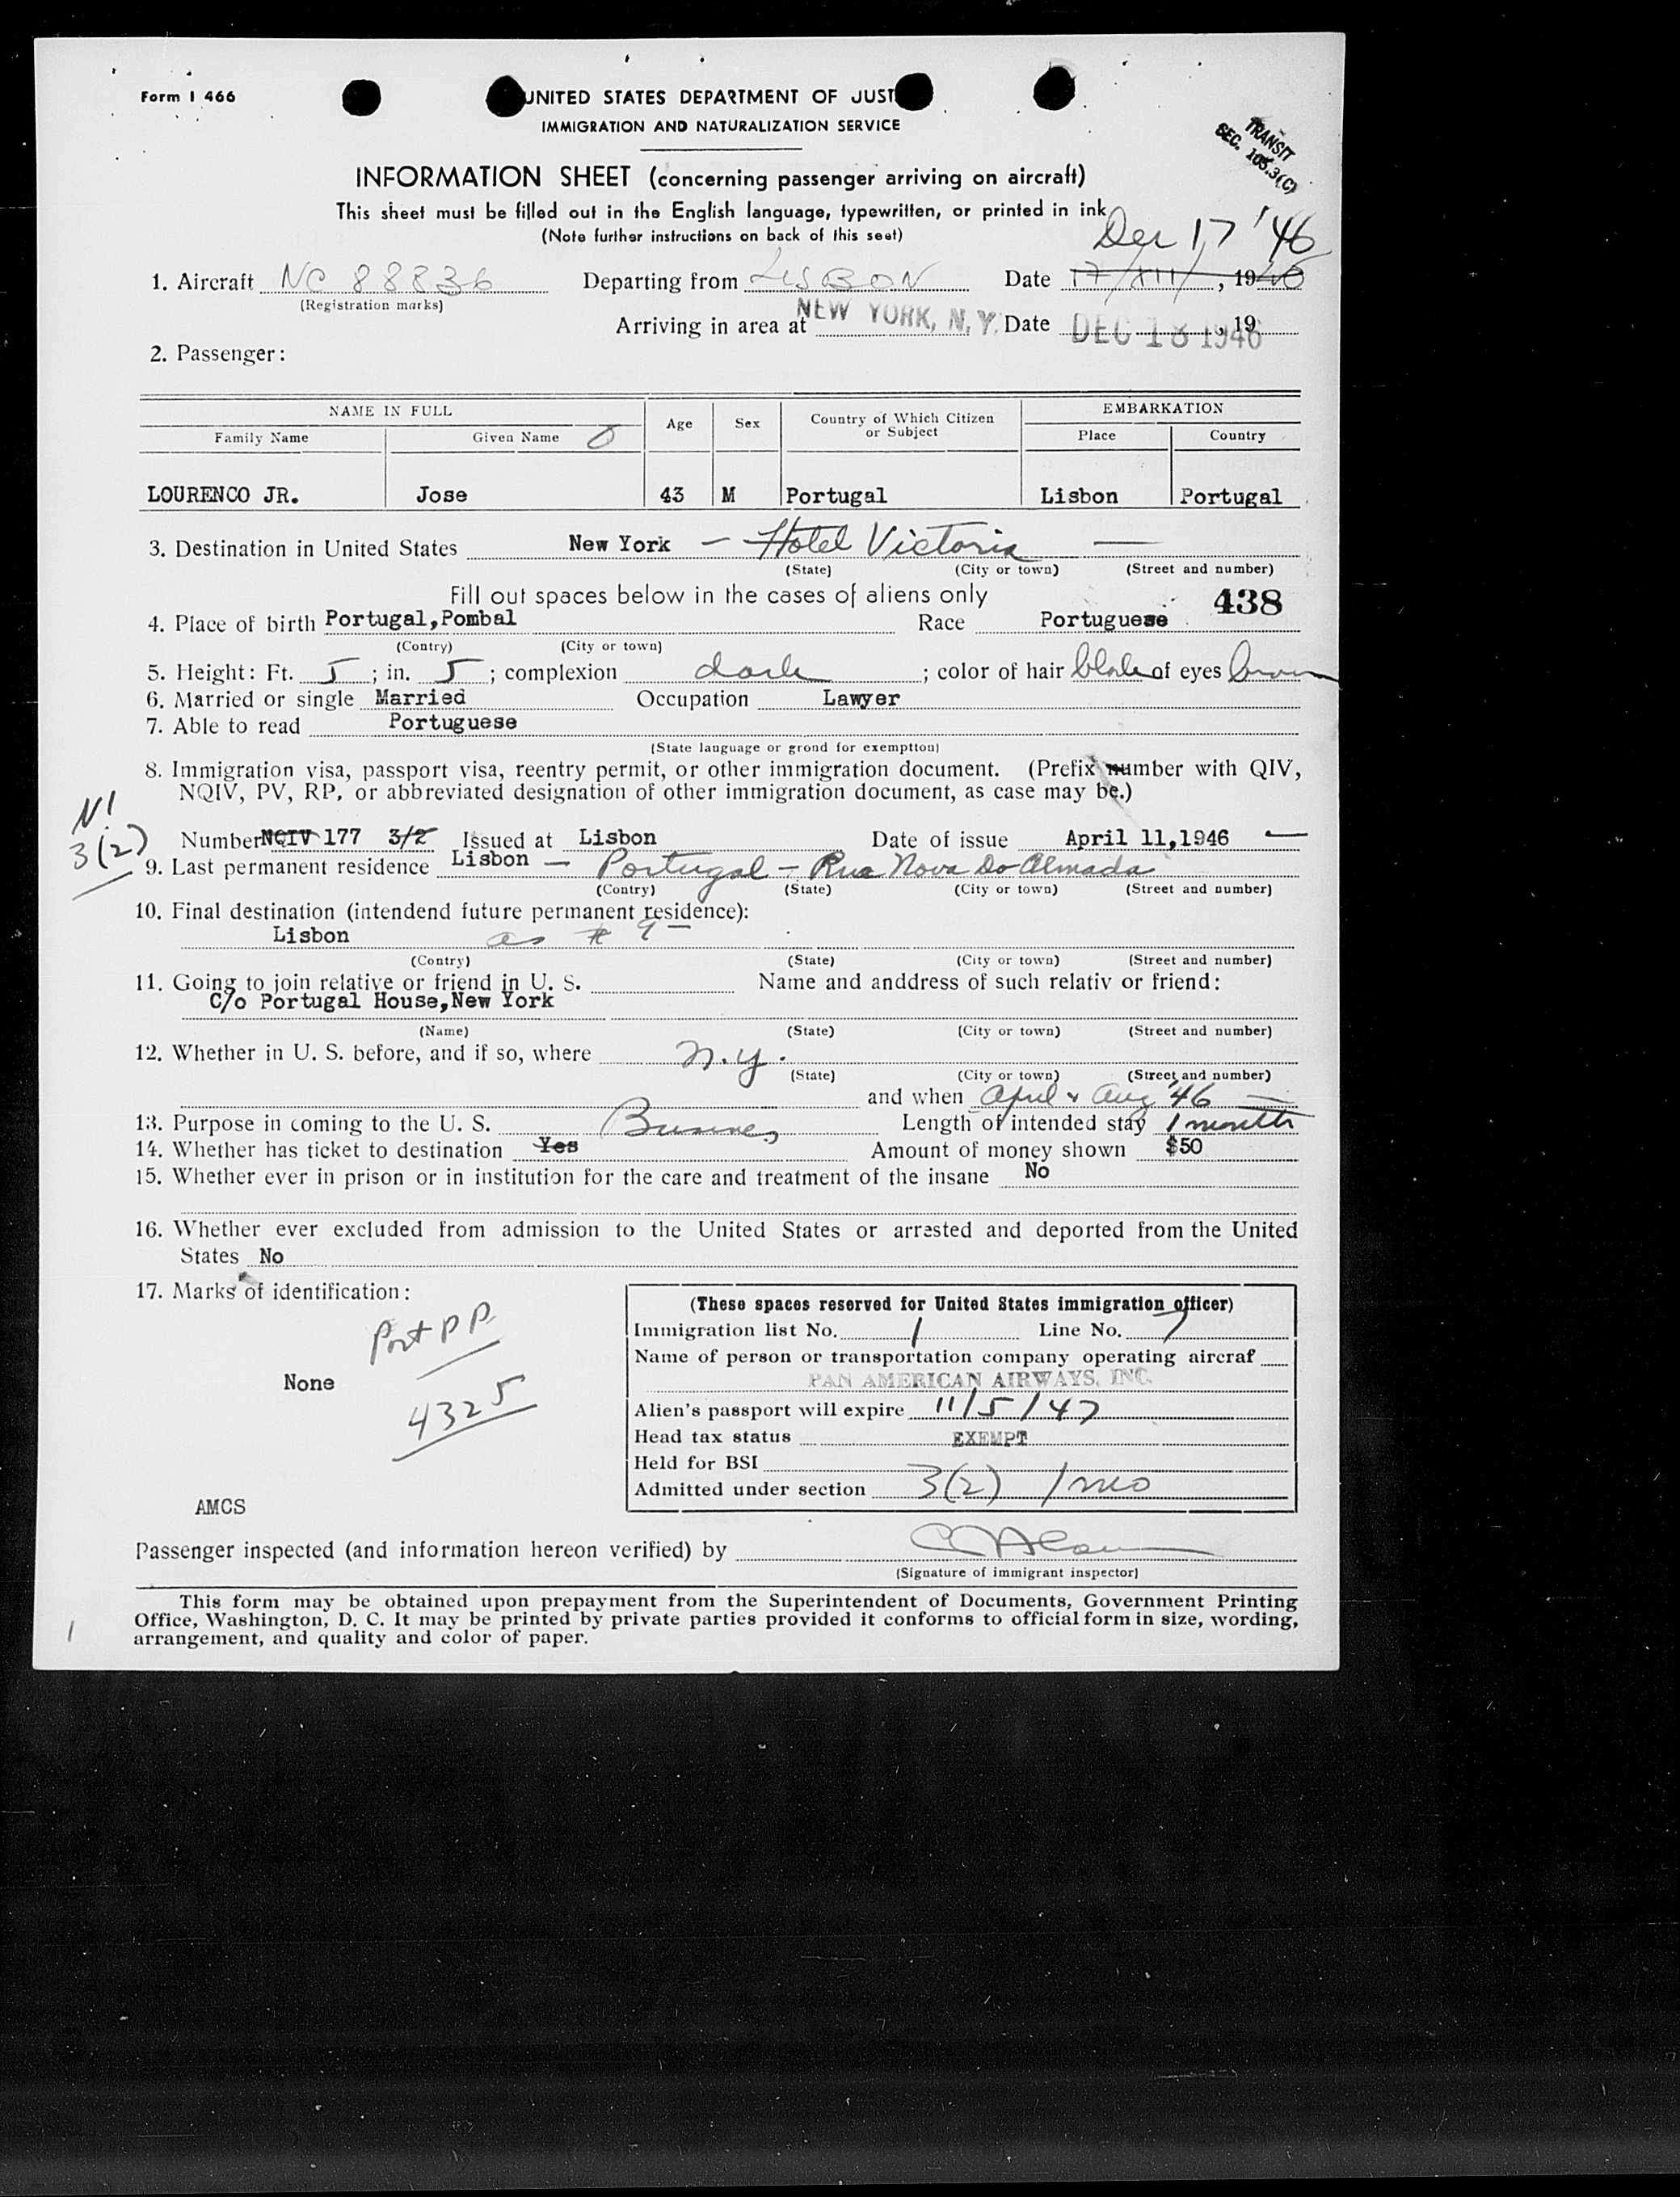 Form I 466
UNITED STATES DEPARTMENT OF JUST
IMMIGRATION AND NATURALIZATION SERVICE
TRANSIT
SEC. 105.3(C)
INFORMATION SHEET (concerning passenger arriving on aircraft)
This sheet must be filled out in the English language, typewritten, or printed in ink
(Note further instructions on back of this seet)
Dec 17 '46
1. Aircraft NC 88836 Departing from LISBON Date 17/XII/, 1946
(Registration marks)
Arriving in area at NEW YORK, N.Y. Date DEC 18 1946, 19
2. Passenger:
NAME IN FULL
Family Name Given Name Age Sex Country of Which Citizen or Subject EMBARKATION Place Country
LOURENCO JR. Jose 43 M Portugal Lisbon Portugal
3. Destination in United States New York — Hotel Victoria —
(State) (City or town) (Street and number)
Fill out spaces below in the cases of aliens only 438
4. Place of birth Portugal,Pombal Race Portuguese
(Contry) (City or town)
5. Height: Ft. 5; in. 5; complexion dark; color of hair black of eyes brown
6. Married or single Married Occupation Lawyer
7. Able to read Portuguese
(State language or grond for exemption)
8. Immigration visa, passport visa, reentry permit, or other immigration document. (Prefix number with QIV,
NQIV, PV, RP, or abbreviated designation of other immigration document, as case may be.)
3(2)
Number NQIV 177 3/2 Issued at Lisbon Date of issue April 11,1946 —
9. Last permanent residence Lisbon — Portugal - Rua Nova Do Almada
(Contry) (State) (City or town) (Street and number)
10. Final destination (intendend future permanent residence):
Lisbon as # 9 -
(Contry) (State) (City or town) (Street and number)
11. Going to join relative or friend in U. S. Name and anddress of such relativ or friend:
C/o Portugal House,New York
(Name) (State) (City or town) (Street and number)
12. Whether in U. S. before, and if so, where N.Y.
(State) (City or town) (Street and number)
and when April & Aug '46 —
13. Purpose in coming to the U. S. Business Length of intended stay 1 month
14. Whether has ticket to destination Yes Amount of money shown $50
15. Whether ever in prison or in institution for the care and treatment of the insane No
16. Whether ever excluded from admission to the United States or arrested and deported from the United
States No
17. Marks of identification:
Port PP.
None
4325
AMCS
(These spaces reserved for United States immigration officer)
Immigration list No. 1 Line No. 7
Name of person or transportation company operating aircraf
PAN AMERICAN AIRWAYS, INC.
Alien's passport will expire 11/5/47
Head tax status EXEMPT
Held for BSI
Admitted under section 3(2) 1 mo
Passenger inspected (and information hereon verified) by
(Signature of immigrant inspector)
This form may be obtained upon prepayment from the Superintendent of Documents, Government Printing
Office, Washington, D. C. It may be printed by private parties provided it conforms to official form in size, wording,
arrangement, and quality and color of paper.